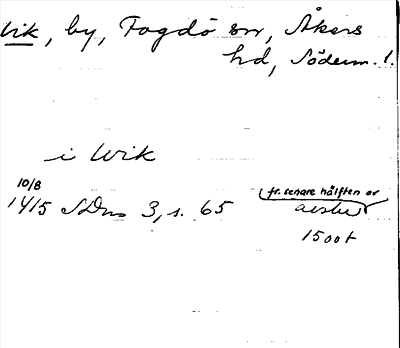 Vik, by, Fogdö sn, Åkers
hd, Söderm. l.
i Wik
10/8
1415 SDns 3, s. 65
fr. senare hälften av
avskr
1500 t